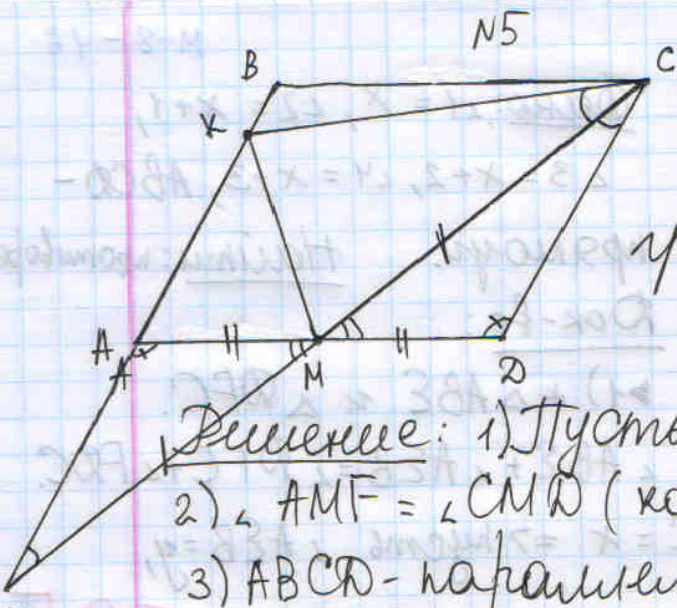 N5
B
C
K
A
A
M
D
Решение: 1) Пусть
2) ∠ AMF = ∠ CMD (ко
3) ABCD - параллел